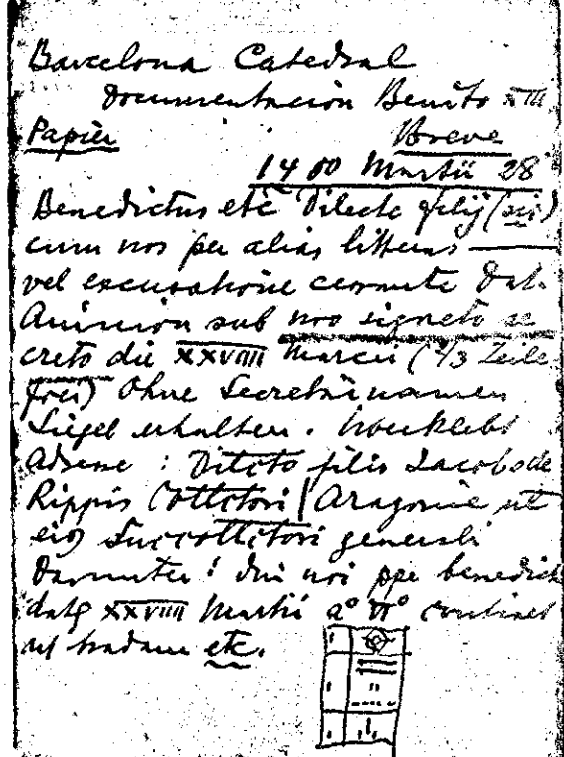 Barcelona Catedral
Documentacion Benito XIII
Papier Breve
1400 Martii 28
Benedictus etc Dilecte filij (sic)
cum nos per alias litteras —
vel excusatione cessante Dat.
Avinion sub nro signeto se
creto die XXVIIII Marcii (2/3 Zeile
frei) Ohne Secretärnamen
Siegel erhalten.
Adresse: Dilecto filio Jacobo de
Rippis Collectori / Aragonie ut
eius Succollectori generali
Darunter: dni nri ppe benedict
dat XXVIIII Martii a° VI° continet
ut tradam etc.